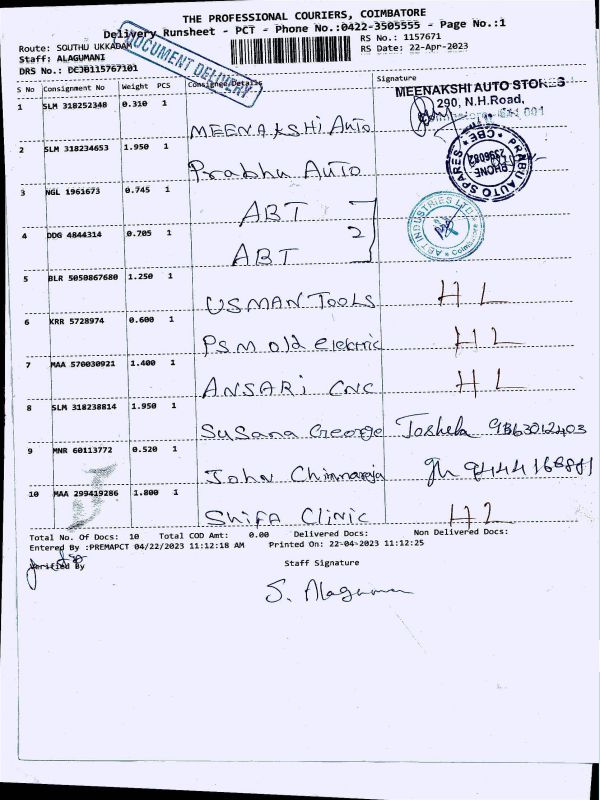 THE PROFESSIONAL COURIERS, COIMBATORE
Delivery Runsheet - PCT - Phone No.:0422-3505555 - Page No.:1
Route: SOUTHU UKKADAM
RS No.: 1157671
Staff: ALAGUMANI
RS Date: 22-Apr-2023
DRS No.: DCJB115767101
DOCUMENT DELIVERY
S No Consignment No Weight PCS Consignee/Details Signature
MEENAKSHI AUTO STORES
290, N.H.Road,
1 SLM 318252348 0.310 1 MEENAKSHi Auto
2 SLM 318234653 1.950 1 Prabhu AUTO
PRABU AUTO SPARES * CBE *
PHONE
2396082
3 NGL 1961673 0.745 1 ABT
4 DDG 4844314 0.705 1 ABT
2
ABT INDUSTRIES LTD
Coimbatore
5 BLR 5050867680 1.250 1 USMAN TOOLS H L
6 KRR 5728974 0.600 1 PSM old electric H L
7 MAA 570030921 1.400 1 ANSARi CNC H L
8 SLM 318238814 1.950 1 Susana George
9 MNR 60113772 0.520 1 John
10 MAA 299419286 1.800 1 Shifa Clinic H L
Total No. Of Docs: 10 Total COD Amt: 0.00 Delivered Docs: Non Delivered Docs:
Entered By :PREMAPCT 04/22/2023 11:12:18 AM Printed On: 22-04-2023 11:12:25
Verified By Staff Signature